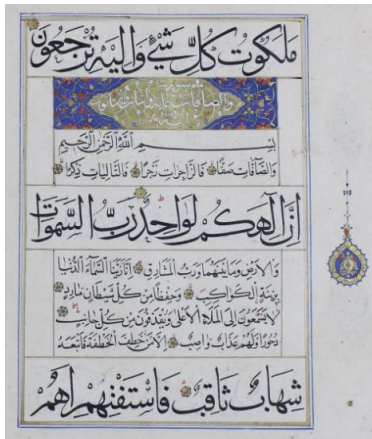 ملكوت كل شيء واليه ترجعون
بسم الله الرحمن الرحيم
والصافات صفا فالزاجرات زجرا فالتاليات ذكرا
ان الهكم لواحد رب السموات
والارض وما بينهما ورب المشارق انا زينا السماء الدنيا
بزينة الكواكب وحفظا من كل شيطان مارد
لا يسمعون الى الملاء الاعلى ويقذفون من كل جانب
دحورا ولهم عذاب واصب الا من خطف الخطفة فاتبعه
شهاب ثاقب فاستفتهم اهم